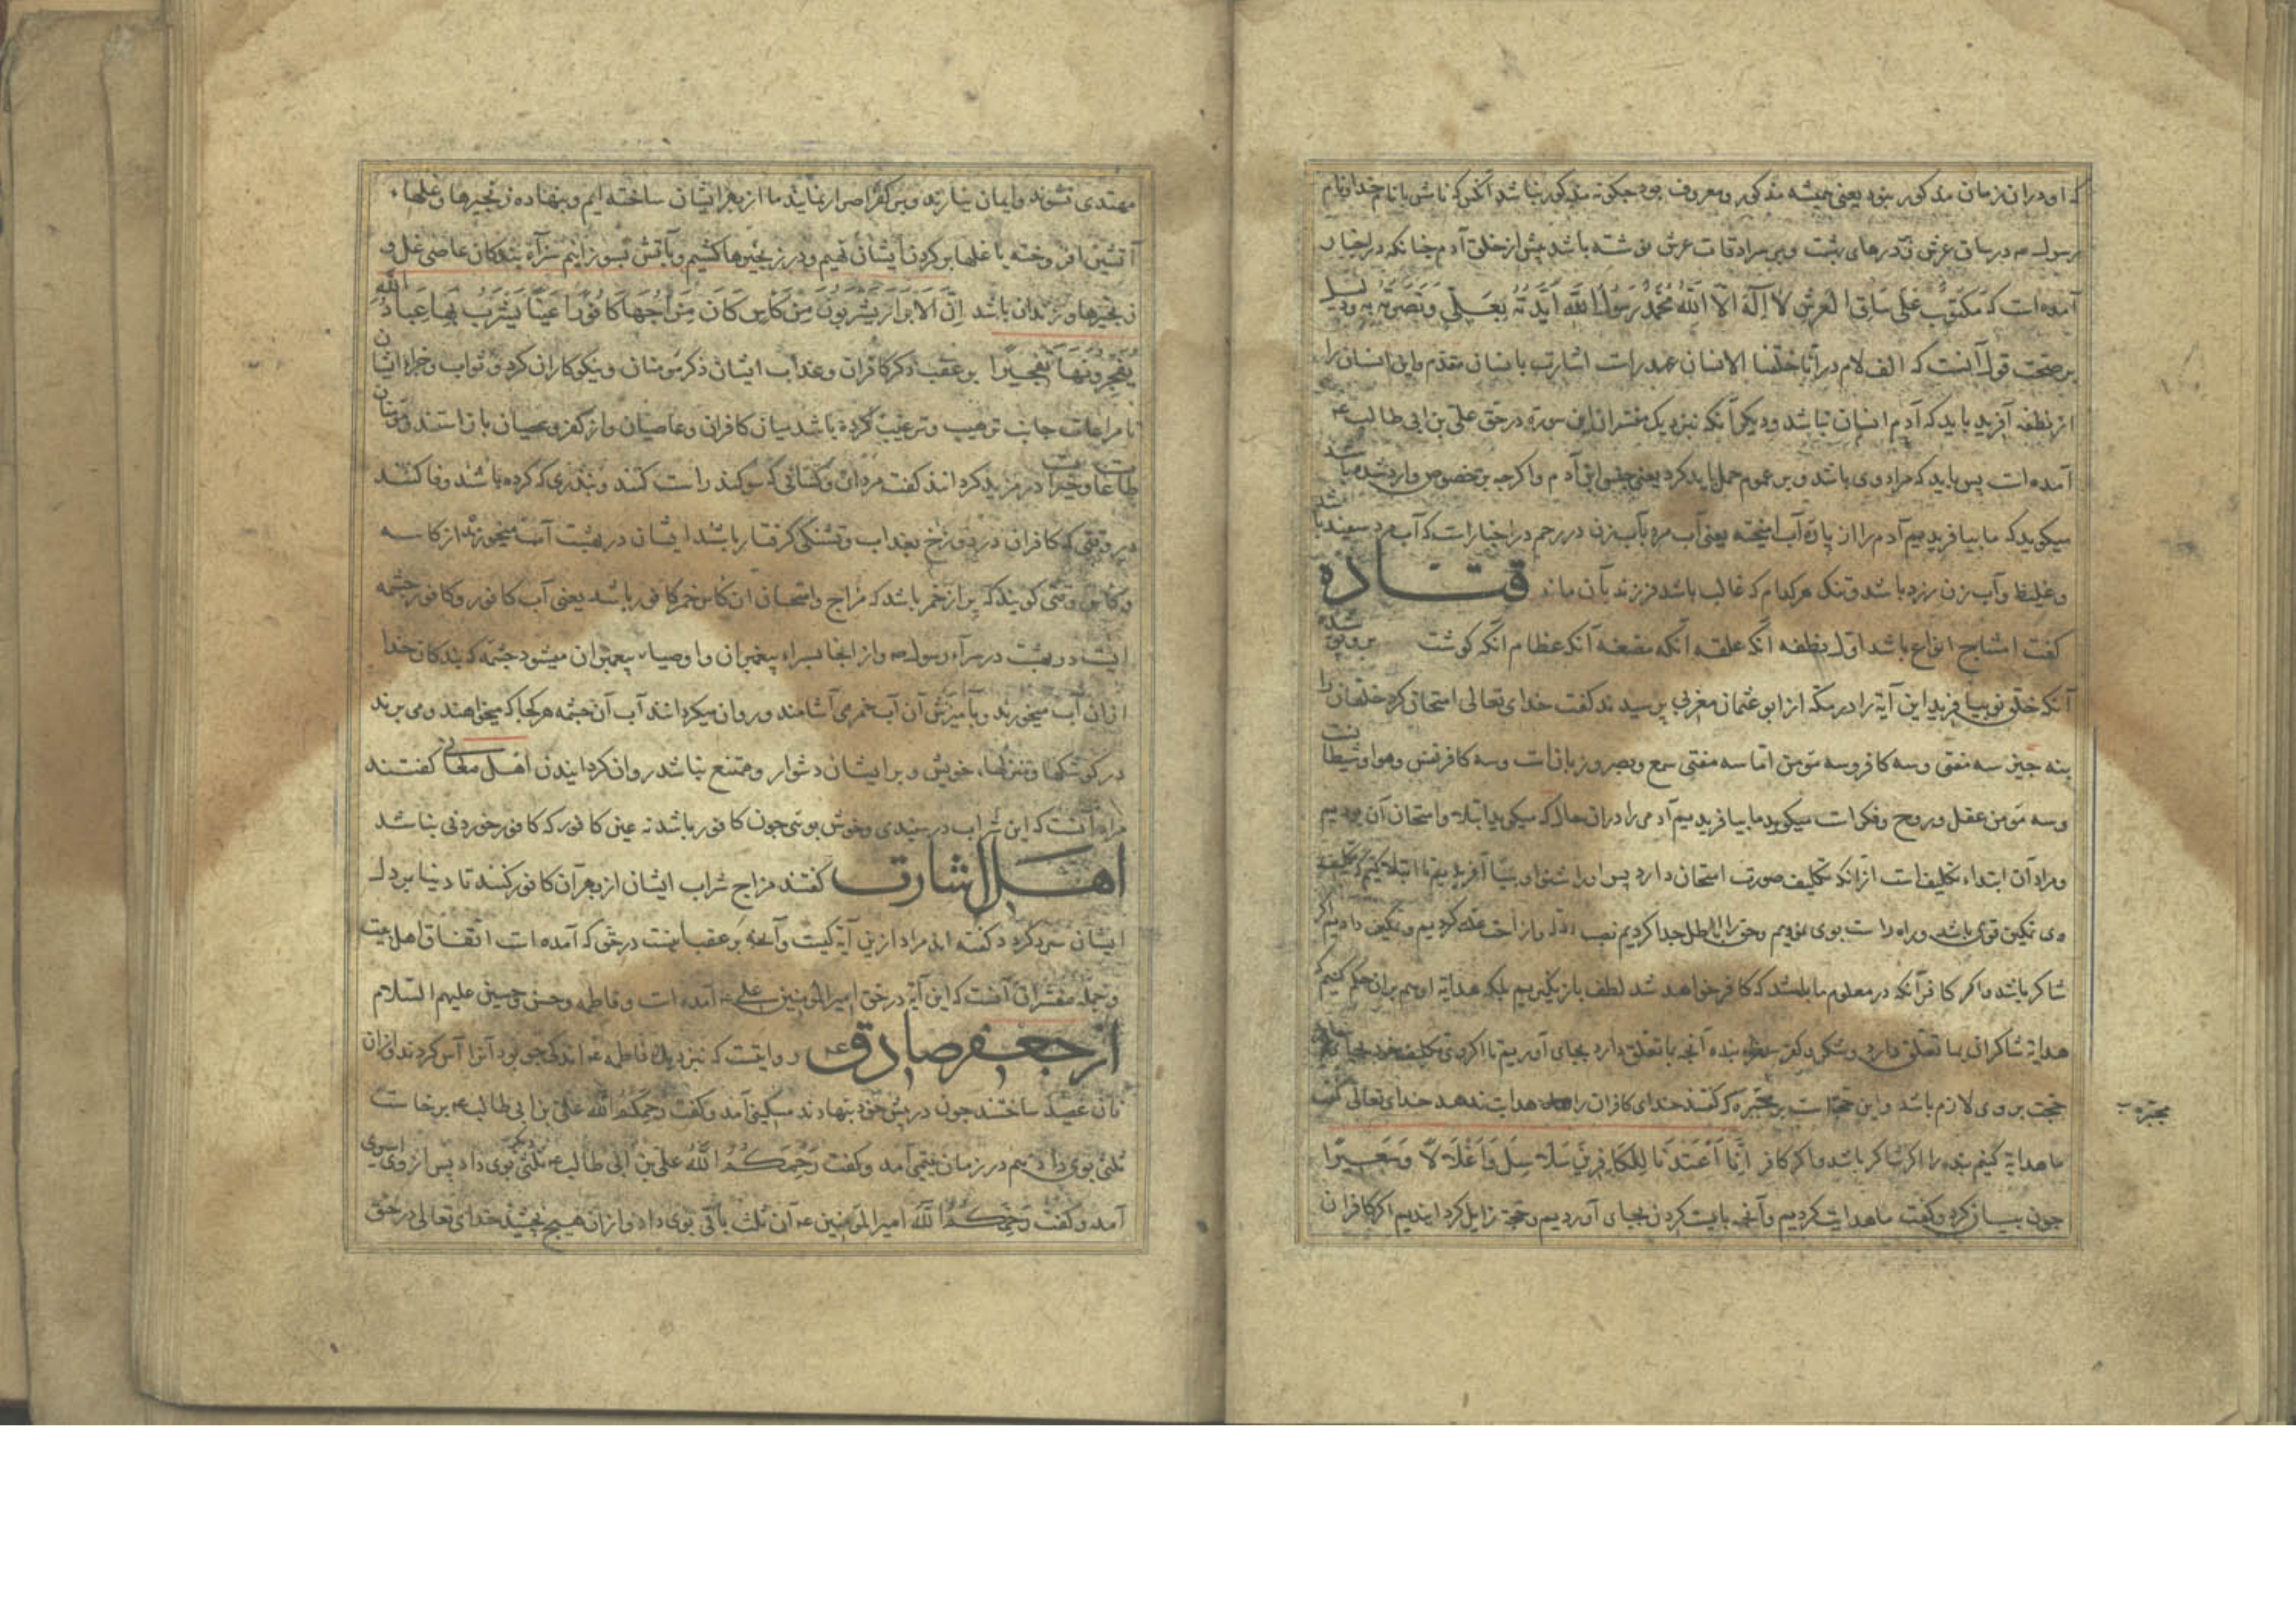 که او در ان زمان مذکور نبود یعنی همیشه مذکور و معروف بود چگونه مذکور نباشد آنکس که نامش با نام خدا و نام
رسول ص در ساق عرش و در درهای بهشت و بر سرادقات عرش نوشته باشد پیش از خلق آدم چنانکه در اخبار
آمده است که مَکتُوبٌ عَلی سَاقِ العَرشِ لا اِلهَ اِلّا اللّه مُحَمَّدٌ رَسُولُ اللّه اَیَّدتُهُ بِعَلِیٍّ وَنَصَرتُهُ بِه و دلیل
بر صحت قول آنست که الف لام در انّا خلقنا الانسان عهد راست اشارت بانسان مقدم و این انسان را
از نطفه آفرید باید که آدم انسان نباشد و دیگر آنکه نزدیک مفسران این سوره در حق علی بن ابی طالب ع
آمده است پس باید که مراد وی باشد و بر عموم حمل باید کرد یعنی جنس ابن آدم و اکرچه بر خصوص وارد شده باشد
میکوید که ما بیافریدیم آدم را از پارۀ آب امیخته یعنی آب مرد بآب زن در رحم در اخبار است که آب مرد سفید باشد
و غلیظ و آب زن زرد باشد و تنک هر کدام که غالب باشد فرزند بآن ماند قتاده
کفت امشاج انواع باشد اول نطفه آنکه علقه آنکه مضغه آنکه عظام آنکه کوشت برو پوشد
آنکه خلق نو بیافرید این آیة را در مکّه از ابو عثمان مغربی پرسیدند کفت خدای تعالی امتحان کرد خلقان را
بنه چیز سه مفتی و سه کافر و سه مؤمن امّا سه مفتی سمع و بصر و زبان است و سه کافر نفس و هوا و شیطان است
و سه مؤمن عقل و روح و فکر است میکوید ما بیافریدیم آدمی را در ان حال که میکوید ابتلا و امتحان آن بودیم
و مراد آن ابتداء تکلیف است از انکه تکلیف صورت امتحان دارد پس او را شنوا و بینا آفریدیم تا ابتلا کنیم و تکلیف
وی تمکین قوی باشد و راه راست بوی نمودیم و حق را از باطل جدا کردیم نصب ادله و ازاحت علت کردیم و تمکین دادیم اکر
شاکر باشد و اکر کافر آنکه در معلوم ما باشد که کافر خواهد شد لطف باز نگیریم بلکه هدایة او هم بران حکم کنیم که
هدایة شاکران بما تعلق دارد و شکر و کفر بنده آنچه بما تعلق دارد بجای آوریم تا اکر وی تکلیف خود بجا نیارد
حجت بر وی لازم باشد و این حجة است بر مجبره که کفتند خدای کافران را هدایت ندهد خدای تعالی کفت
ما هدایة کنیم بنده را اکر شاکر باشد و اکر کافر اِنّا اَعتَدنَا لِلکَافِرِینَ سَلاسِلَ وَاَغلَالًا وَسَعِیرًا
چون بیان کرد و کفت ما هدایت کردیم و آنچه بایست کردن بجای آوردیم و حجّة زایل کردانیدیم اکر کافران
مجبره ب
مهتدی نشوند و ایمان نیارند و بر کفر اصرار نمایند ما از بهر ایشان ساخته ایم و بنهاده زنجیرها و غلها
آتشین افروخته با غلها بر کردن ایشان نهیم و در زنجیرها کشیم و بآتش بسوزانیم سزآء بندکان عاصی غل و
زنجیرها و زندان باشد اِنَّ الاَبرَارَ یَشرَبُونَ مِن کَأسٍ کَانَ مِزَاجُهَا کَافُورًا عَینًا یَشرَبُ بِهَا عِبَادُ اللّهِ
یُفَجِّرُونَهَا تَفجِیرًا بر عقب ذکر کافران و عذاب ایشان ذکر مؤمنان و نیکوکاران کرد و ثواب و جزاء ایشان
تا مراعات جانب ترهیب و ترغیب کرده باشد میان کافران و عاصیان و از کفر و عصیان باز استند و مؤمنان
طاعات و خیرات در مزید کردانند کفت مردان و کسانی که سوکند راست کنند و بنذری که کرده باشد وفا کنند
در وقتی که کافران در دوزخ بعذاب و تشنکی کرفتار باشد ایشان در بهشت آب میخورند از کاسه
و کاس وقتی کویند که پر از خمر باشد که مزاج و امتحان ان کاس خمر کافور باشد یعنی آب کافور و کافور چشمه
ایست در بهشت در سرآء رسول ص و از انجا بسراء پیغمبران و اوصیاء پیغمبران میشود چشمه که بندکان خدا
از ان آب میخورند و بآمیزش آن آب خمر می آشامند و روان میکردانند آب آن چشمه هر کجا که میخواهند و می برند
در کوشکها و منزلها خویش و بر ایشان دشوار و ممتنع نباشد روان کردانیدن اهل معانی کفتند
مراد آنست که این شراب در سپیدی و خوش بویی چون کافور باشد نه عین کافور که کافور خوردنی نباشد
اهل اشارت کفتند مزاج شراب ایشان از بهر آن کافور کنند تا دنیا بر دل
ایشان سرد کردد کفته اند مراد ازین آیة کیست و آنچه بر عقب اینست در حق که آمده است اتفاق اهل بیت
و جمله مفسران آنست که این آیة در حق امیر المؤمنین علی ع آمده است و فاطمه و حسن و حسین علیهم السلام
از جعفر صادق ع روایتست که نزدیک فاطمه ع اندکی جو بود آنرا آس کردند و از ان
نان عصیده ساختند چون در پیش خود بنهادند مسکینی آمد و کفت رحمکم الله علی بن ابی طالب ع برخاست
ثلثی بوی داد هم در زمان یتیمی آمد و کفت رَحِمَکُمُ اللّهُ علی بن ابی طالب ع ثلثی دیگر بوی داد پس از وی اسیری
آمد و کفت رَحِمَکُمُ اللّهُ امیر المؤمنین ع آن ثلث باقی بوی داد و از ان هیچ نچشیدند خدای تعالی در حق